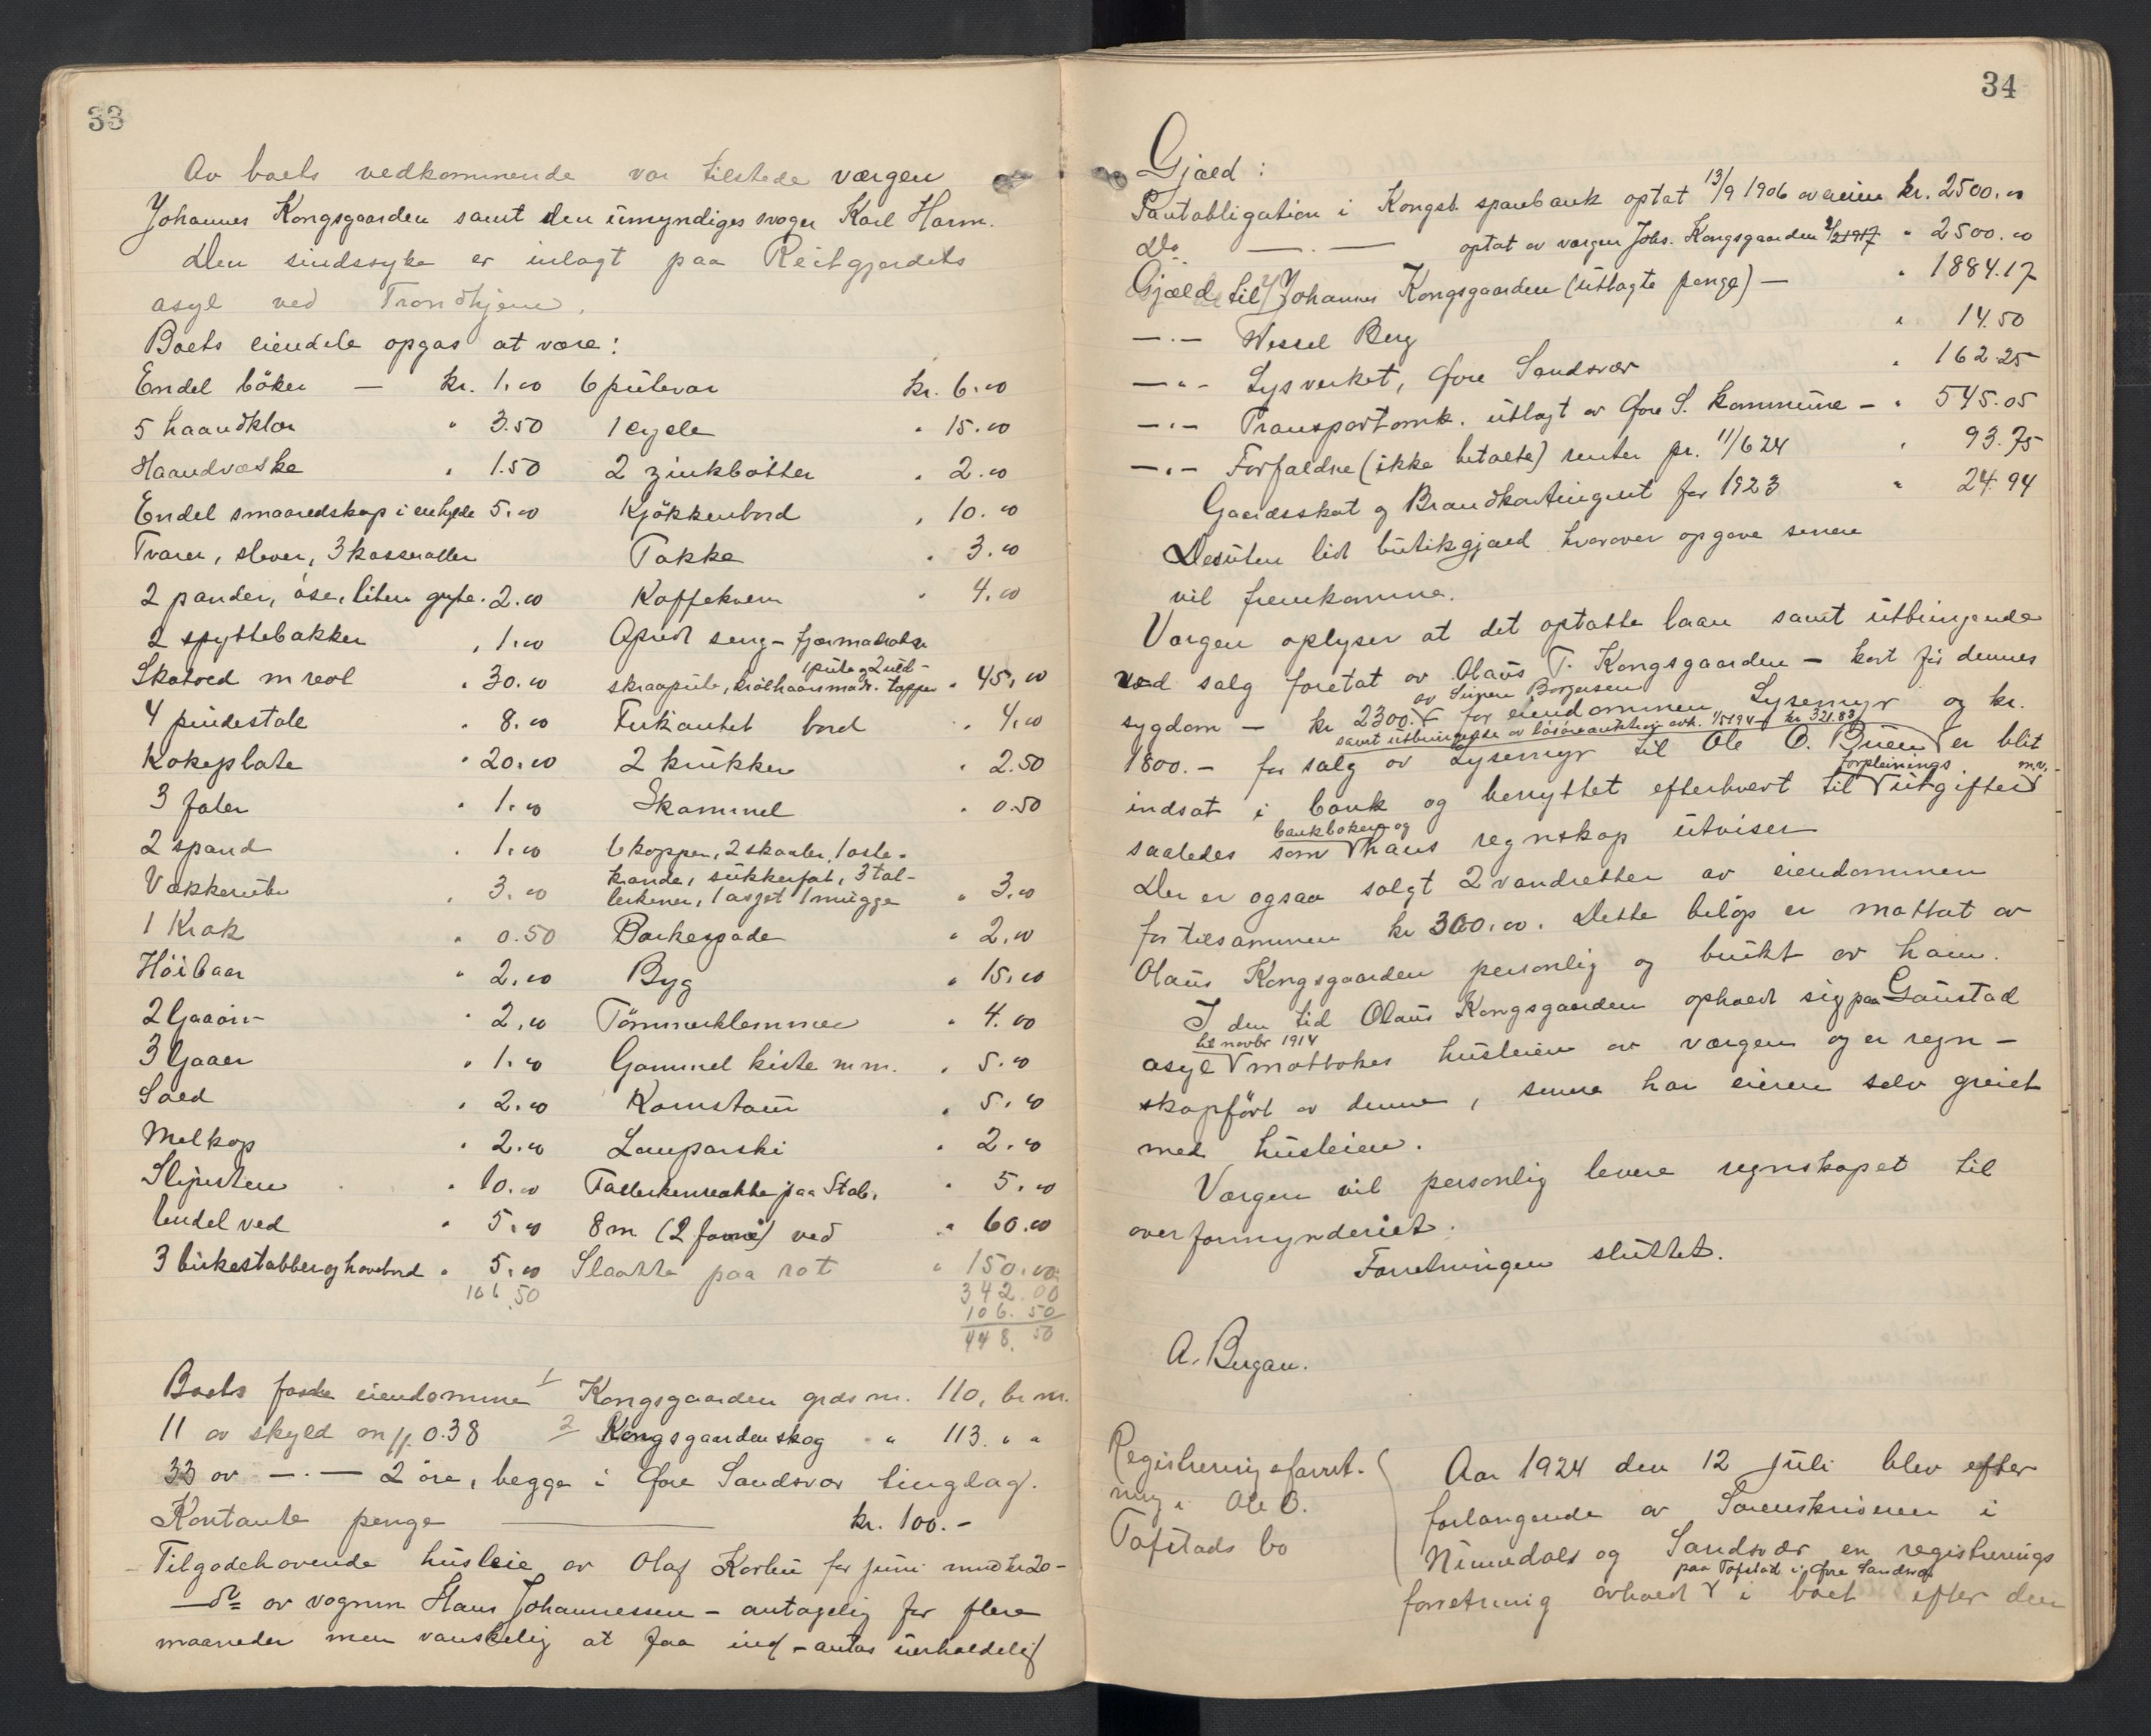 33
Av boets vedkommende var tilstede værgen
Johannes Kongsgaarden samt den umyndiges svoger Karl Harm.
Den sindssyke er inlagt paa Reitgjerdets
asyl ved Trondhjem.
Boets eiendele opgas at være:
Endel böker — kr. 1.00 6 putevar kr. 6.00
5 haandklær " 3.50 1 cycle " 15.00
Haandvæske " 1.50 2 zinkbötter " 2.00
Endel smaaredskap i en hylde 5.00 Kjökkenbord " 10.00
Tvarer, slever, 3 kasseroller Takke " 3.00
2 pander, öse, liten gryte " 2.00 Kaffekvern " 4.00
2 spyttebakker " 1.00 Opredt seng - fjærmadrats
1 pute og 2 uld-
Skatoed m reol " 30.00 skraapute, krölhaarsmadr. tæpper " 45.00
4 pindestole " 8.00 Firkantet bord " 4.00
Kokeplate " 20.00 2 krukker " 2.50
3 foter " 1.00 Skammel " 0.50
2 spand " 1.00 6 kopper, 2 skaaler, 1 oste-
kande, sukkerfat, 3 tal-
Vækkerur " 3.00 lerkener, 1 asjet 1 mugge " 3.00
1 Krak " 0.50 Barkespade " 2.00
Höibaar " 2.00 Byg " 15.00
2 " 2.00 Tömmerklemmer " 4.00
3 " 1.00 Gammel kiste m.m. " 5.00
Saed " 2.00 Kornstaur " 5.00
Melkop " 2.00 Lauparski " 2.00
Slipesten " 10.00 Tallerkenrække paa Stab. " 5.00
Endel ved " 5.00 8 m (2 favne) ved " 60.00
3 birkestabber og hövebord " 5.00 Slaatte paa rot " 150.00
106.50 342.00
106.50
448.50
Boets faste eiendomme 1/ Kongsgaarden grds nr. 110, br nr.
11 av skyld mrk. 0.38 2/ Kongsgaarden skog " " 113 " "
33 av —"— 2 öre, begge i Övre Sandsvær tinglag.
Kontante penge — kr. 100.-
Tilgodehavende husleie av Olaf Karlin for juni md kr 20-
—do av vognm Hans Johannessen - antagelig for flere
maaneder men vanskelig at faa ind - antas uerholdelig
34
Gjæld:
Pantobligation i Kongsb. sparebank optat 13/9 1906 av eieren kr. 2500.00
Do —"— optat av værgen Johs. Kongsgaarden 2/2 1917 " 2500.00
Gjæld til Johannes Kongsgaarden (utlagte penge) — " 1884.17
—"— Wessel Berg " 14.50
—"— Lysverket, Övre Sandsvær " 162.25
—"— Transportomk. utlagt av Övre S. kommune - " 545.05
—"— Forfaldne (ikke betalte) renter pr. 11/6 24 " 93.75
Gaardsskat og Brandkontingent for 1923 " 24.94
Desuten lidt butikgjæld hvorover opgave senere
vil fremkomme.
Værgen oplyser at det optatte laan samt utbringende
ved salg foretat av Olaus T. Kongsgaarden - kort för dennes
av Simen Borgersen
sygdom - kr 2300.- for eiendommen Lysemyr og kr.
samt utbringende av lösöreauktion avh. 1/5 1914 kr 321.83
1800.- for salg av Lysemyr til Ole O. Bruen er blit
forpleinings m.v.
indsat i bank og benyttet efterhvert til utgifter
bankboken og
saaledes som hans regnskap utviser
Der er ogsaa solgt 2 vandretter av eiendommen
for tilsammen kr 300.00. Dette belöp er mottat av
Olaus Kongsgaarden personlig og brukt av ham.
I den tid Olaus Kongsgaarden opholdt sig paa Gaustad
til novbr 1914
asyl mottokes husleien av værgen og er regn-
skapsfört av denne, senere har eieren selv greiet
med husleien.
Værgen vil personlig levere regnskapet til
overformynderiet.
Forretningen sluttet.
A. Bergan.
Registreringsforret-
ning i Ole O.
Tofstads bo
Aar 1924 den 12 juli blev efter
forlangende av Sorenskriveren i
Numedal og Sandsvær en registrerings
paa Tofstad i Övre Sandsvær
forretning avholdt i boet efter den